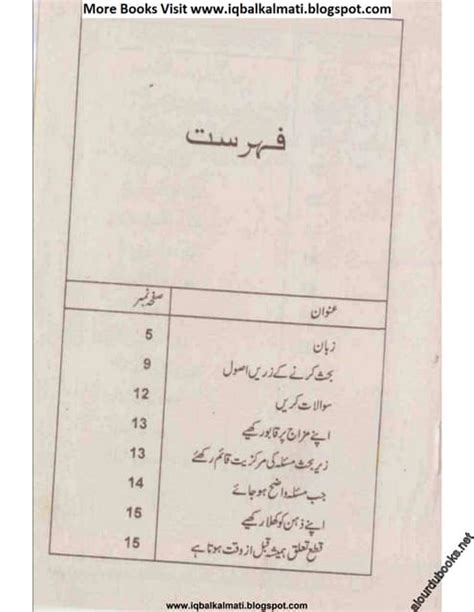 More Books Visit www.iqbalkalmati.blogspot.com
فہرست
عنوان صفحہ نمبر
زبان 5
بحث کرنے کے زریں اصول 9
سوالات کریں 12
اپنے مزاج پر قابو رکھیے 13
زیر بحث مسئلہ کی مرکزیت قائم رکھئے 13
جب مسئلہ واضح ہو جائے 14
اپنے ذہن کو کھلا رکھیے 15
قطع تعلق ہمیشہ قبل از وقت ہوتا ہے 15
alourdubooks.net
www.iqbalkalmati.blogspot.com